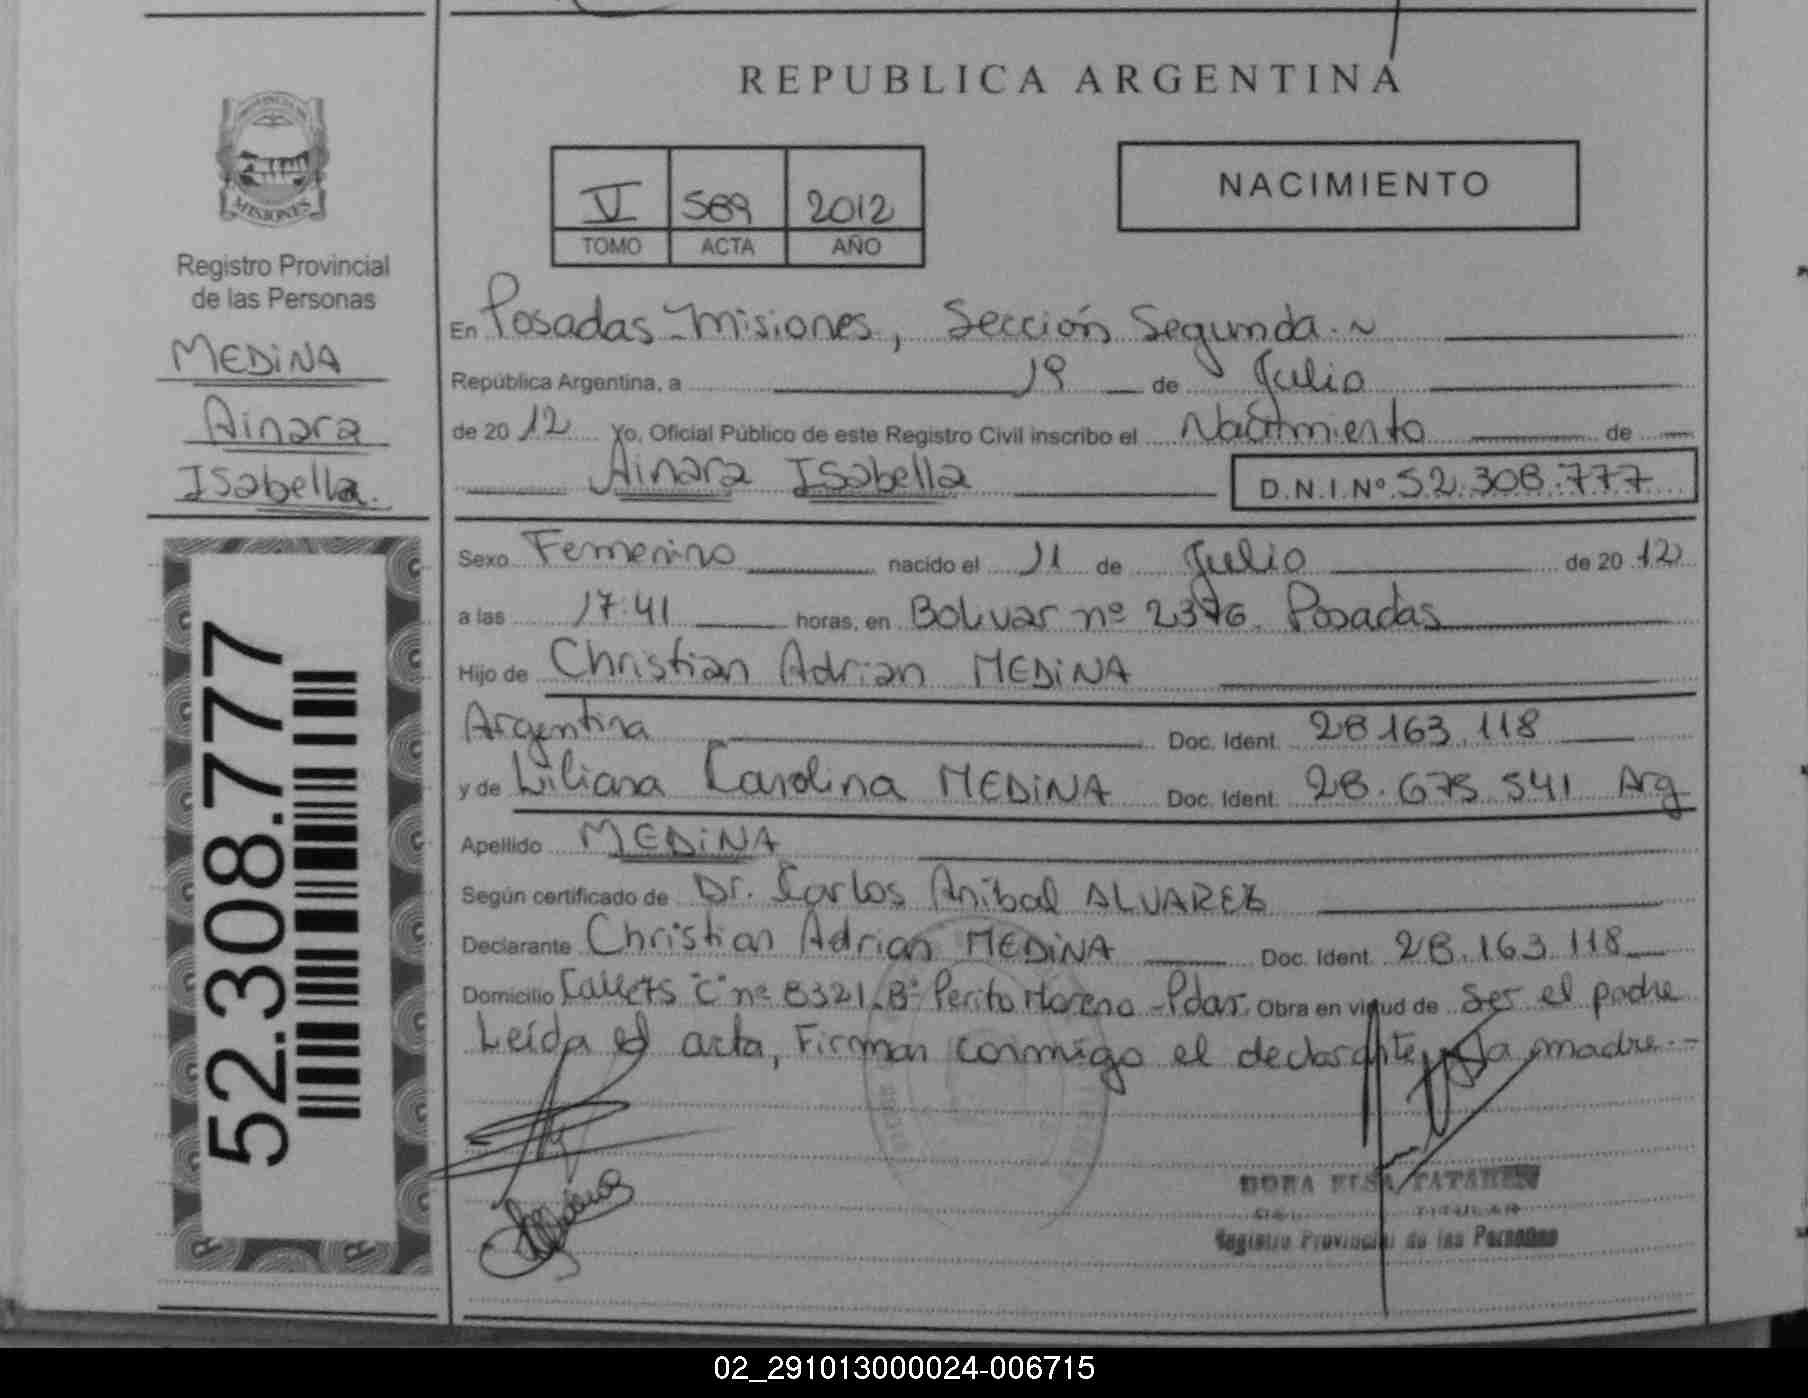 REPUBLICA ARGENTINA
PROVINCIA DE
MISIONES
Registro Provincial
de las Personas
MEDINA
Ainara
Isabella.
52.308.777
V 589 2012
TOMO ACTA AÑO
NACIMIENTO
En Posadas-Misiones, Sección Segunda.~
República Argentina, a 19 de Julio
de 2012 Yo, Oficial Público de este Registro Civil inscribo el Nacimiento de
Ainara Isabella D.N.I.Nº 52.308.777
Sexo Femenino nacido el 11 de Julio de 2012
a las 17:41 horas, en Bolivar nº 2376. Posadas
Hijo de Christian Adrian MEDINA
Argentina Doc. Ident. 28.163.118
y de Liliana Carolina MEDINA Doc. Ident. 28.675.541 Arg
Apellido MEDINA
Según certificado de Dr. Carlos Anibal ALVAREZ
Declarante Christian Adrian MEDINA Doc. Ident. 28.163.118
Domicilio "C" nº 8321-Bº Perito Moreno-Pdas. Obra en virtud de ser el padre
Leída el acta, Firman conmigo el declarante y la madre.-
DORA ELSA
TITULAR
Registro Provincial de las Personas
02_291013000024-006715